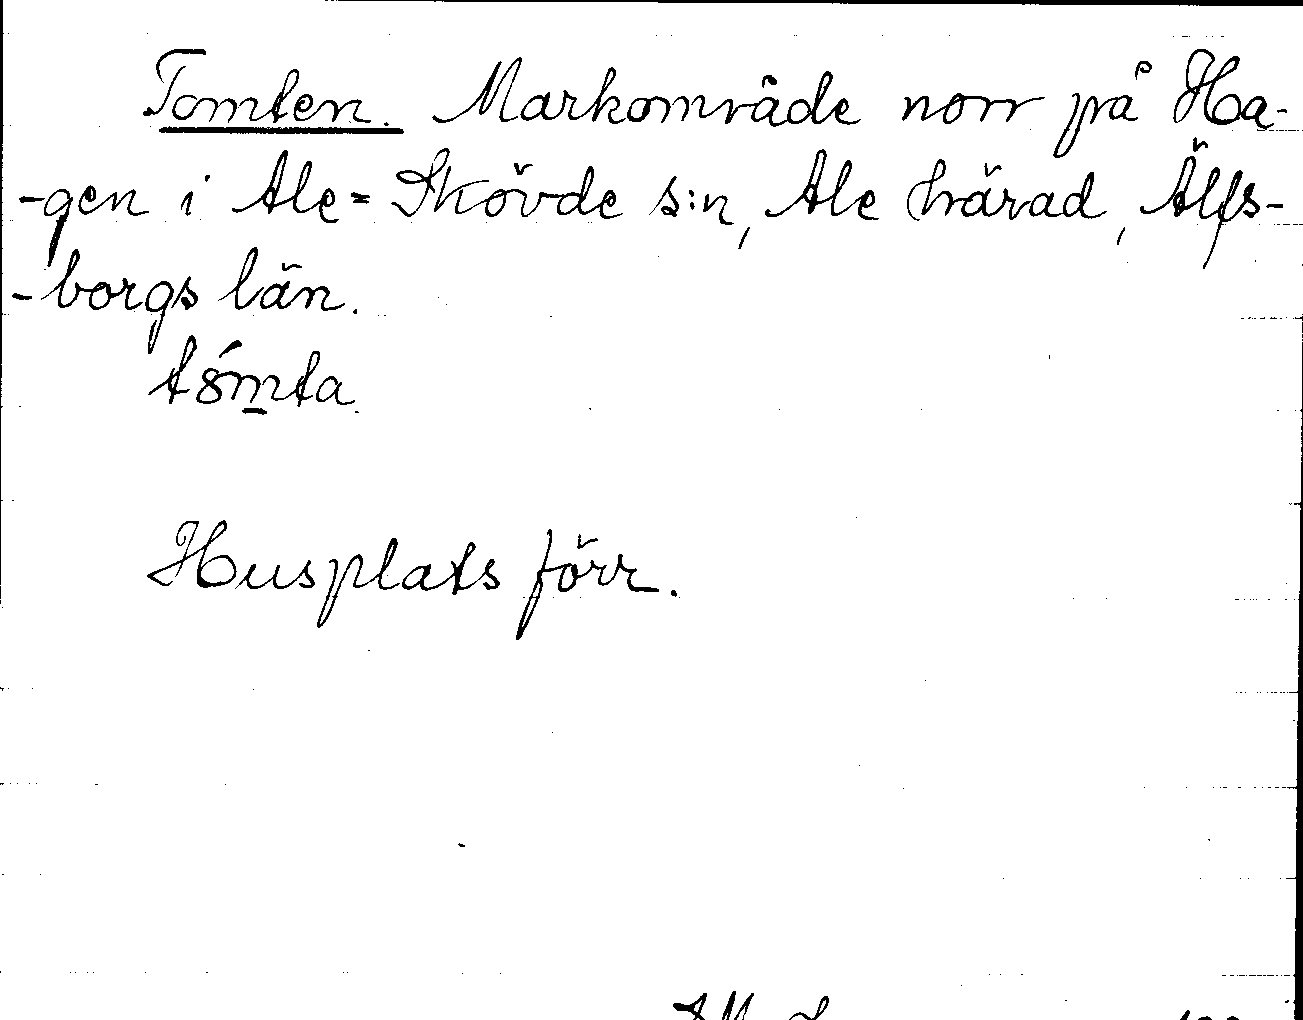 Tomten. Markområde norr på Ha-
-gen i Ale-Skövde s:n, Ale härad, Älfs-
-borgs län.
tómta
Husplats förr.